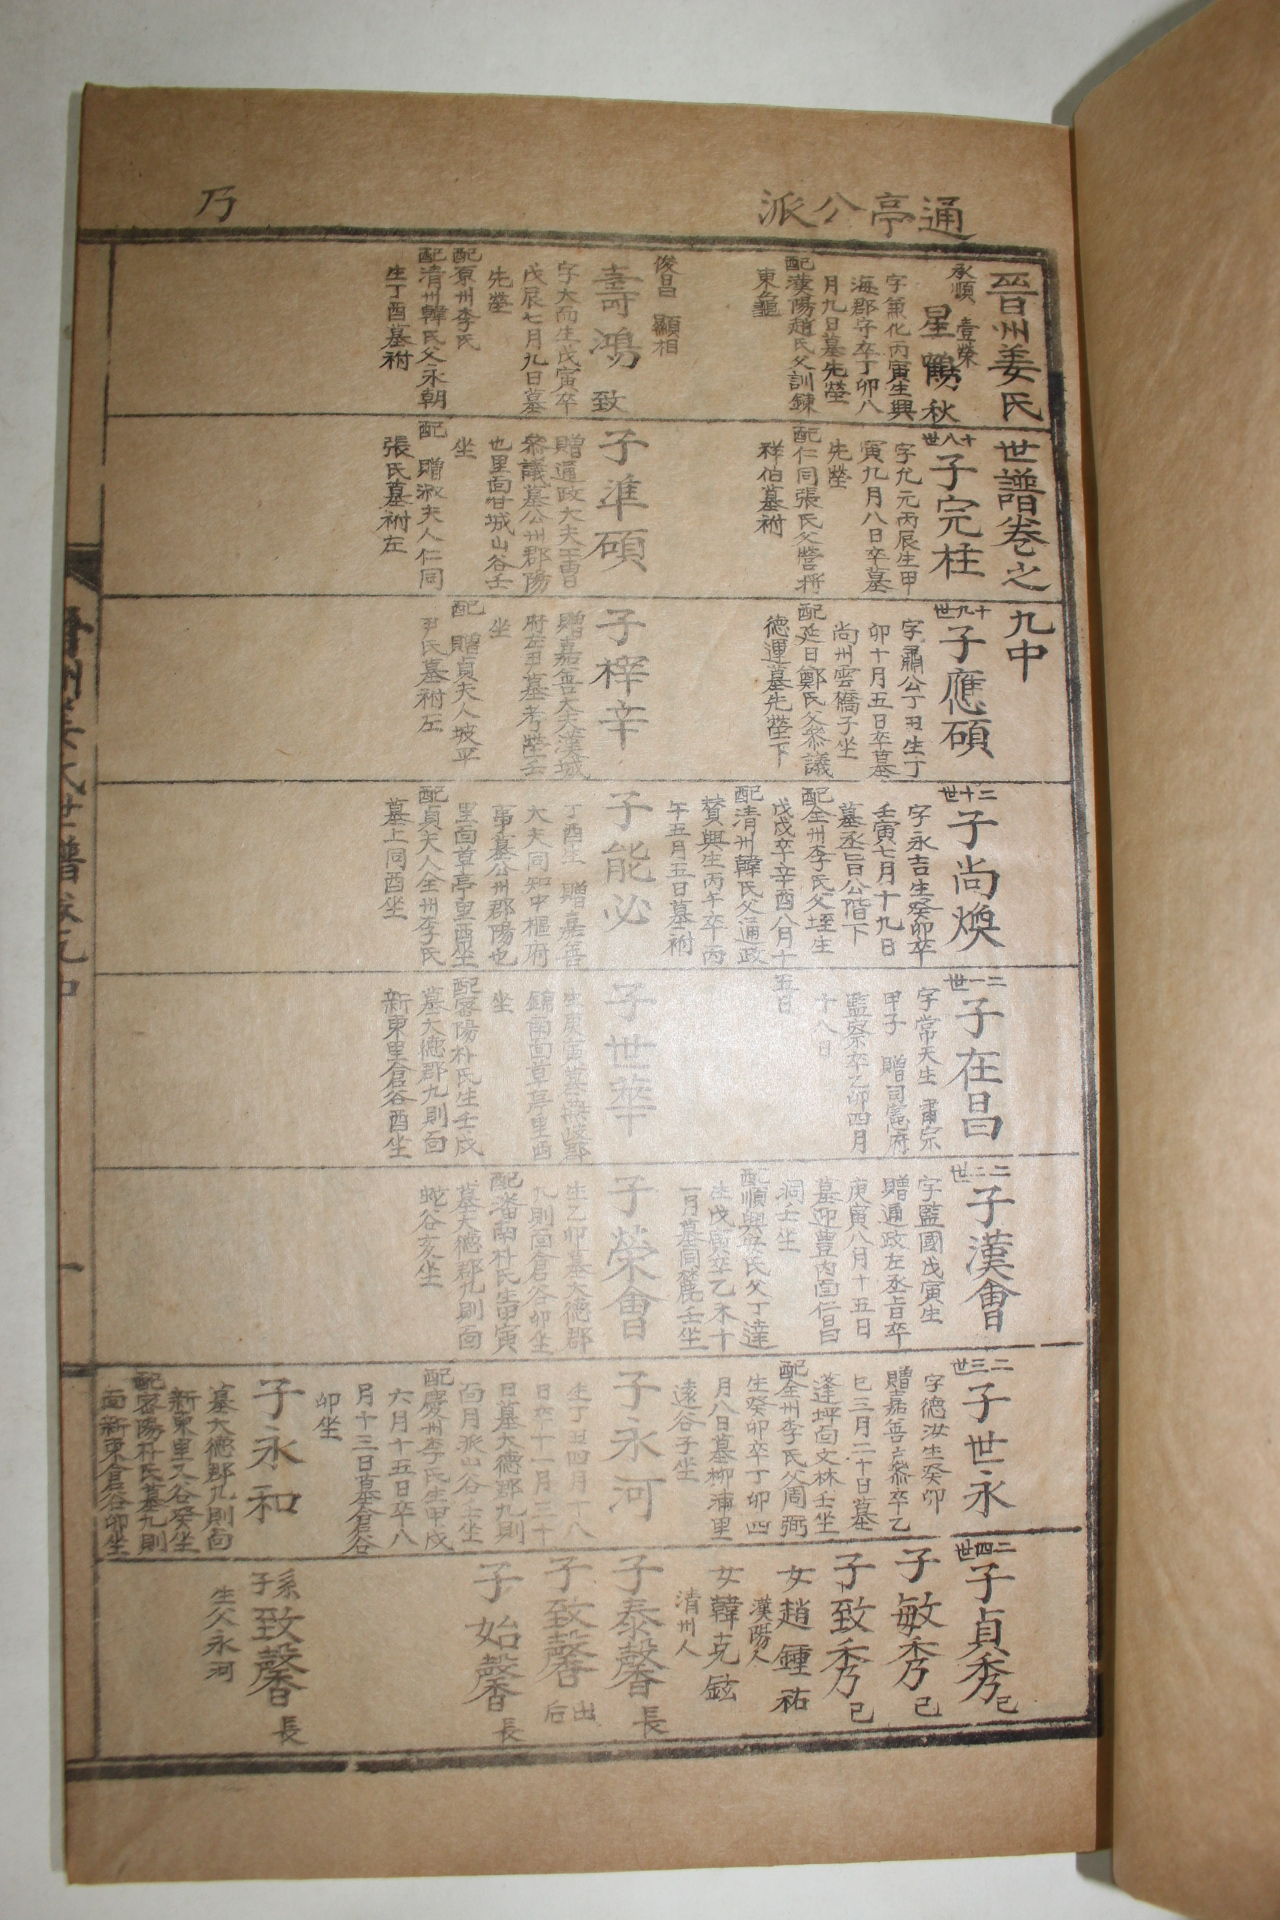 通亭公派
乃
晉州姜氏世譜卷之九中
承順 壹榮
星鶴 秋
字氣化丙寅生興
海郡守卒丁卯八
月九日墓先塋
配漢陽趙氏父訓鍊
東龜
俊昌 顯相
壽鴻 致
字大而生戊寅卒
戊辰七月九日墓
先塋
配原州李氏
配清州韓氏父永朝
生丁酉墓祔
十八世
子完柱
字允元丙辰生甲
寅九月八日卒墓
先塋
配仁同張氏父營將
祥伯墓祔
子準碩
贈通政大夫工曹
參議墓公州郡陽
也里面甘城山谷壬
坐
配 贈淑夫人仁同
張氏墓祔左
十九世
子應碩
字肅公丁丑生丁
卯十月五日卒墓
尚州雲橋子坐
配延日鄭氏父參議
德運墓先塋下
子梓辛
贈嘉善大夫漢城
府左尹墓考塋壬
坐
配 贈貞夫人坡平
尹氏墓祔左
二十世
子尚煥
字永吉生癸卯卒
壬寅七月十九日
墓丞旨公階下
配全州李氏父垤生
戊戌卒辛酉八月十五日
配清州韓氏父通政
賛興生丙午卒丙
午五月五日墓祔
子能必
丁酉生 贈嘉善
大夫同知中樞府
事墓公州郡陽也
里面草亭里酉坐
配貞夫人全州李氏
墓上同酉坐
二一世
子在昌
字常天生 肅宗
甲子 贈司憲府
監察卒乙卯四月
十八日
子世華
錦南面草亭里酉
坐
配密陽朴氏生壬戌
墓大德郡九則面
新東里倉谷酉坐
二二世
子漢會
字監國戊寅生
贈通政左丞旨卒
庚寅八月十五日
墓迎豊內面仁昌
洞壬坐
配順興安氏父丁達
生戊寅卒乙未十
一月墓同麓壬坐
子榮會
生乙卯墓大德郡
九則面倉谷卯坐
配潘南朴氏生甲寅
墓大德郡九則面
蛇谷亥坐
二三世
子世永
字德汝生癸卯
贈嘉善
巳三月二十日墓
蓬坪面文林壬坐
配全州李氏父周弼
生癸卯卒丁卯四
月八日墓柳浦里
遠谷子坐
子永河
生丁丑四月十八
日卒十一月三十
日墓大德郡九則
面月派山谷壬坐
配慶州李氏生甲戌
六月十五日卒八
月十三日墓倉谷
卯坐
子永和
墓大德郡九則面
新東里 谷癸坐
配密陽朴氏墓九則
面新東倉谷卯坐
二四世
子貞秀 己
子敏秀 己
子致秀 己
女趙鍾祐
漢陽人
女韓克鉉
清州人
子泰馨 長
子致馨 出后
子始馨 長
孫致馨 長
生父永河
晉州姜氏世譜卷九中
一